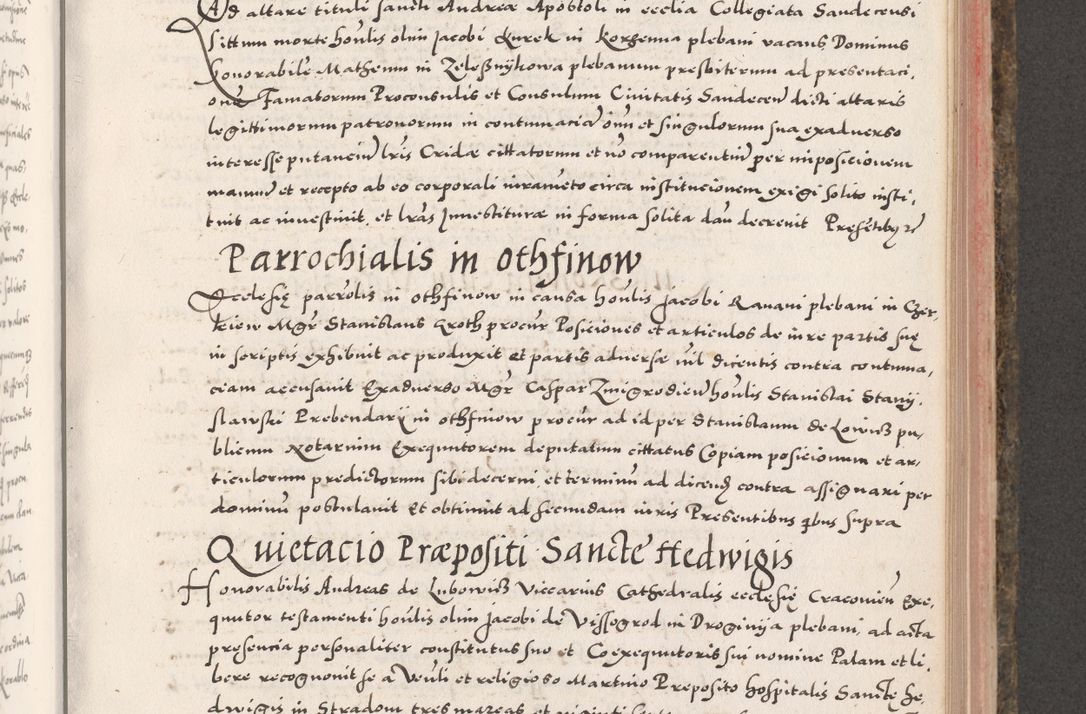 Ad altare tituli sancti Andreæ Apostoli in ecclia Collegiata Sandecensi
Sittum morte hońlis olim Jacobi Kurek in Korzenna plebani vacans Dominus
honorabilē Matheum in Zeleßnykowa plebanum presbiterum ad presentaci,
onē Famatorum Proconsulis et Consulum Civitatis Sandeceń dicti altaris
legittimorum patronorum in contumaciā oīm et singulorum sua exadverso
interesse putanciū lris Cridæ cittatorum et nō comparentiū per imposicionem
manuū et recepto ab eo corporali iurameto circa institucionem exigi solito insti,
tuit ac investivit, et lras Investituræ in forma solita dari decrevit Presētibȝ
Parrochialis in Othfinow
Ecclesię parrōlis in Othfinow in causa hońlis Jacobi Ravani plebani in Czer,
kiew Mgr Stanislaus Groth procur Posiciones et articulos de iure partis suę
in scriptis exhibuit ac produxit et partis adversæ nil dicentis contra contuma,
ciam accusavit Exadverso Mgr Caspar Zmigrodień hońlis Stanislai Stany,
slawski Prebendarÿ in Othfinow procur ad id per Stanislaum de Lowicz pu,
blicum Notarium Exequutorem deputatum cittatus Copiam posicionum et ar,
ticulorum predictorum sibi decerni, et terminū ad dicenđ contra assignari per
dominū postulavit et obtinuit ad secundam iuris Presentibus qbus supra
Quietacio Præpositi Sancte Hedwigis
Honorabilis Andreas de Lubowicz Viccarius Cathedralis ecclesię Cracovień Exe,
quutor testamenti hońlis olim Jacobi de Vissogrod in Droginija plebani, ad acta
presencia personaliter constitutus suo et Coexequutoris sui nomine Palam et li,
bere recognovit se a Veńli et religioso Martino Preposito hospitalis Sancte He,
dwigis in Stradom tres marcas et